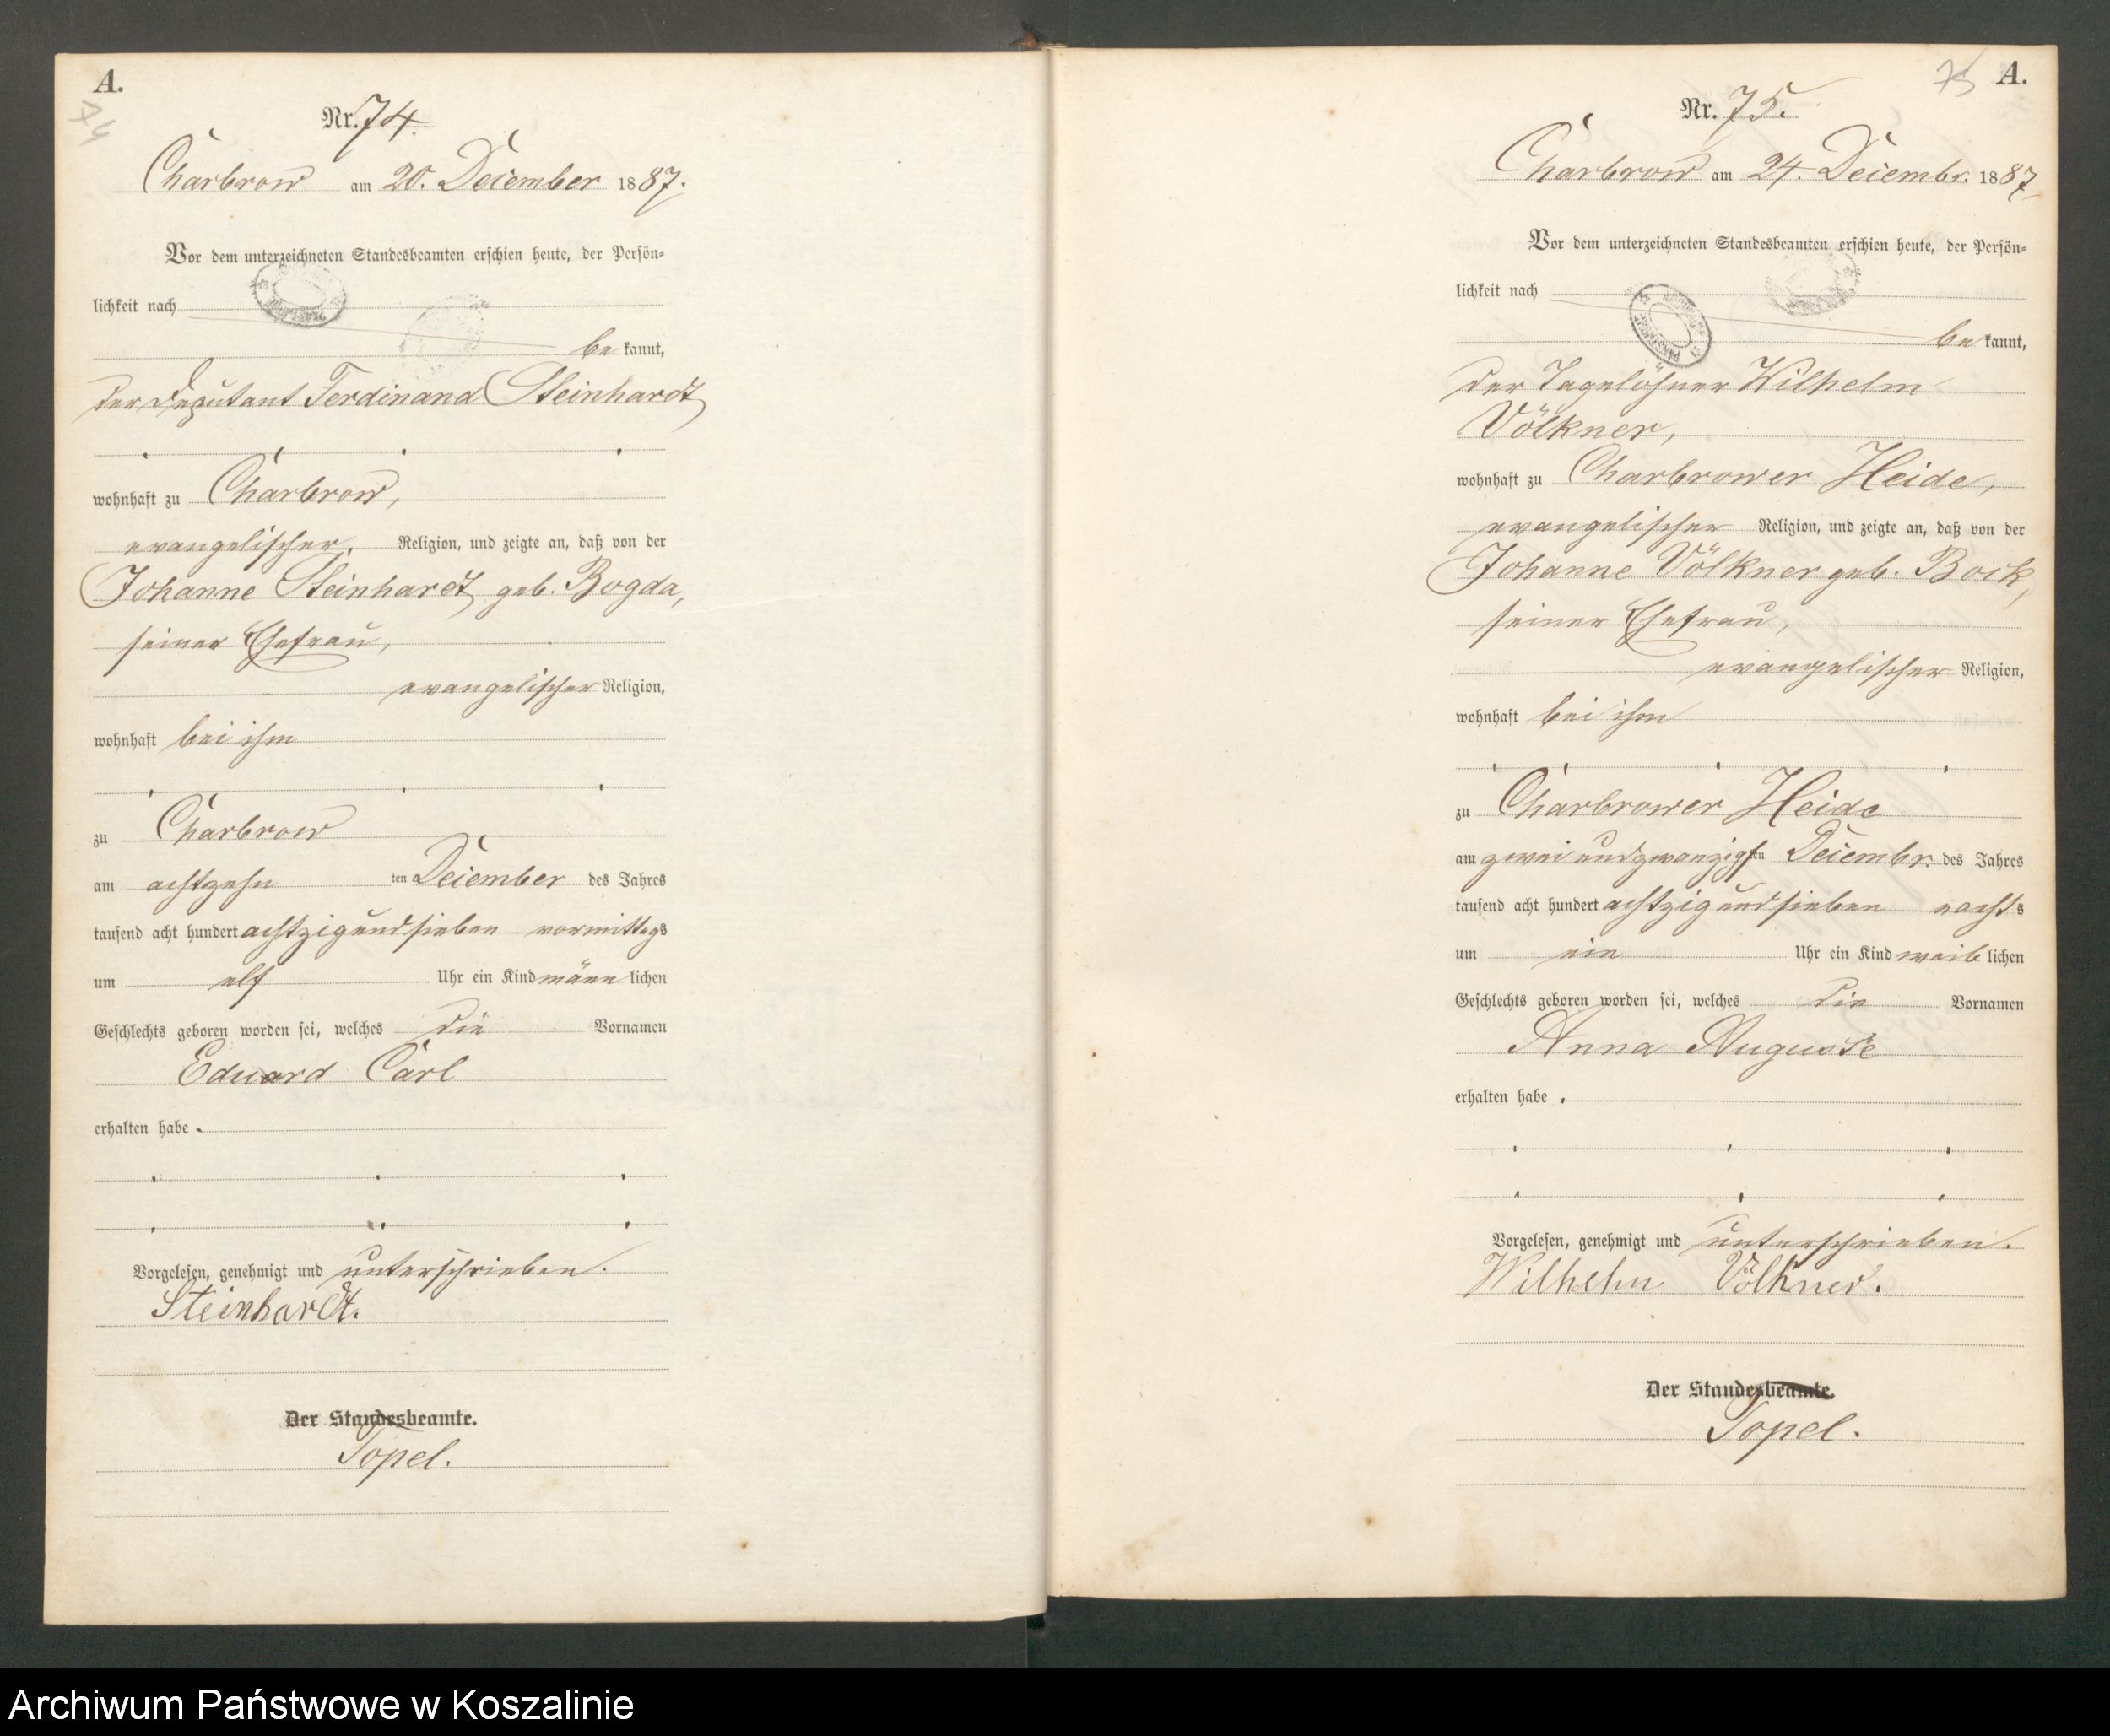 A.
74
Nr. 74.
Charbrow am 20. December 1887.
Vor dem unterzeichneten Standesbeamten erschien heute, der Persön-
lichkeit nach
be kannt,
der Deputant Ferdinand Steinhardt
wohnhaft zu Charbrow,
evangelischer Religion, und zeigte an, daß von der
Johanne Steinhardt geb. Bogda,
seiner Ehefrau,
evangelischer Religion,
wohnhaft bei ihm
zu Charbrow
am achtzehn ten December des Jahres
tausend acht hundert achtzig und sieben vormittags
um elf Uhr ein Kind männ lichen
Geschlechts geboren worden sei, welches die Vornamen
Eduard Carl
erhalten habe.
Vorgelesen, genehmigt und unterschrieben.
Steinhardt.
Der Standesbeamte.
Topel.
75 A.
Nr. 75.
Charbrow am 24. Decembr. 1887
Vor dem unterzeichneten Standesbeamten erschien heute, der Persön-
lichkeit nach
be kannt,
der Tagelöhner Wilhelm
Völkner,
wohnhaft zu Charbrower Heide,
evangelischer Religion, und zeigte an, daß von der
Johanne Völkner geb. Bock,
seiner Ehefrau,
evangelischer Religion,
wohnhaft bei ihm
zu Charbrower Heide
am zwei und zwanzigsten Decembr. des Jahres
tausend acht hundert achtzig und sieben nachts
um ein Uhr ein Kind weib lichen
Geschlechts geboren worden sei, welches die Vornamen
Anna Auguste
erhalten habe.
Vorgelesen, genehmigt und unterschrieben.
Wilhelm Völkner.
Der Standesbeamte.
Topel.
Archiwum Państwowe w Koszalinie